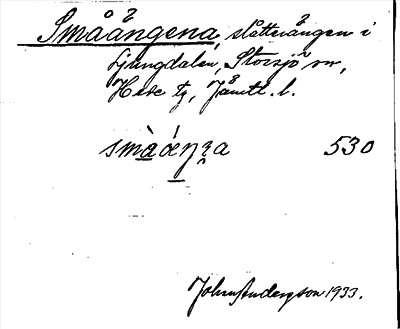 Småängena, slåtterängen i
Ljungdalen, Storsjö sn,
Hede tg, Jämtl. l.
smàǽŋa 530
John Anderzon 1933.